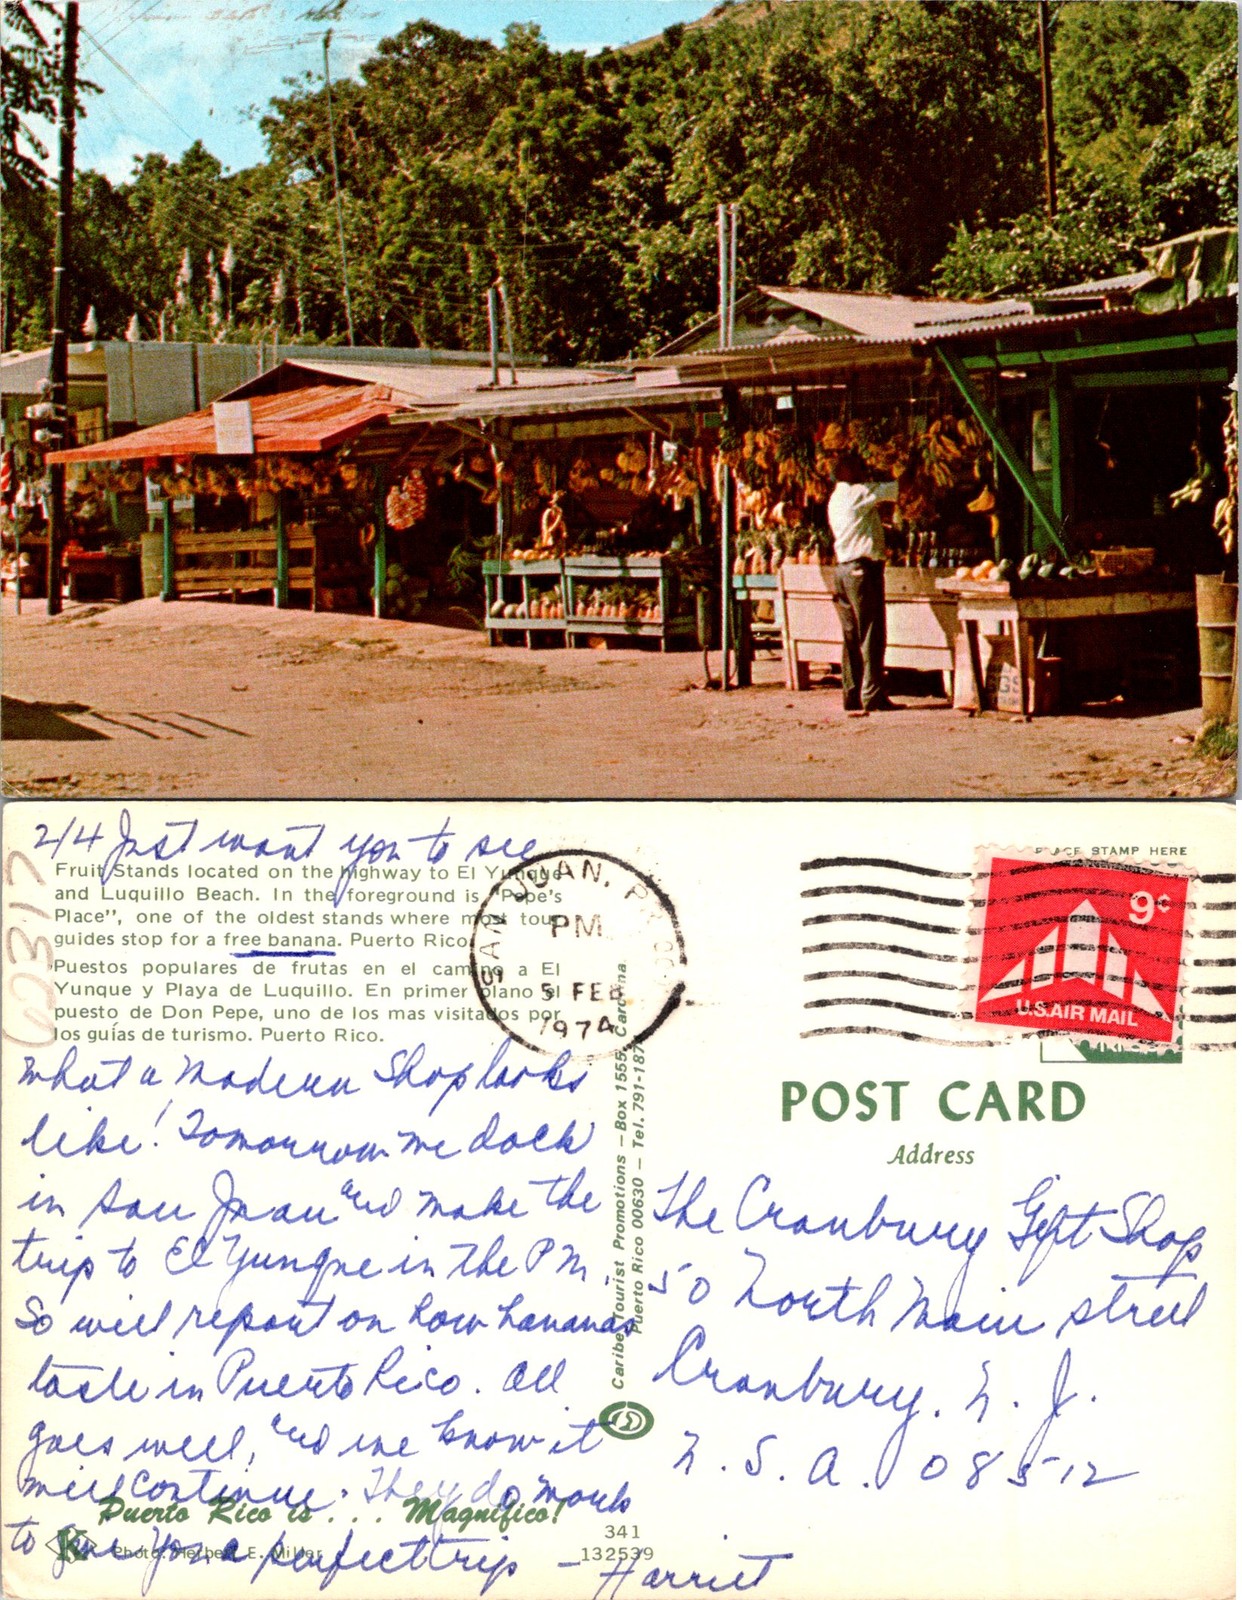 GS
2/4 Just want you to see
Fruit Stands located on the highway to El Yunque
and Luquillo Beach. In the foreground is "Pepe's
Place", one of the oldest stands where most tour
guides stop for a free banana. Puerto Rico.
Puestos populares de frutas en el camino a El
Yunque y Playa de Luquillo. En primer plano el
puesto de Don Pepe, uno de los mas visitados por
los guías de turismo. Puerto Rico.
what a modern Shop looks
like! Tomorrow we dock
in San Juan and make the
trip to El Yunque in the P.M.
So will report on how bananas
taste in Puerto Rico. All
goes well, and we know it
will continue. They do work
to give you a perfect trip – Harriet
Puerto Rico is . . . Magnifico!
K
Photo: Herbert E. Miller
341
132539
Caribe Tourist Promotions – Box 1555, Carolina
Puerto Rico 00630 – Tel. 791-187
SAN JUAN, P.R.
PM
5 FEB
1974
PLACE STAMP HERE
9¢
U.S. AIR MAIL
POST CARD
Address
The Cranbury Gift Shop
50 North Main Street
Cranbury, N. J.
U. S. A. 08512